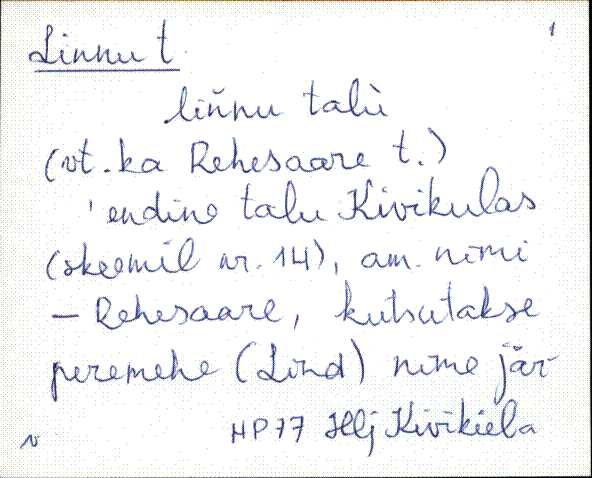 Linnu t. 1
liǹnu talù
(vt. ka Rehesaare t.)
'endine talu Kivikulas
(skeemil nr. 14), am. nimi
— Rehesaare, kutsutakse
peremehe (Lind) nime jär-
HP77 Hlj Kivikiela
v